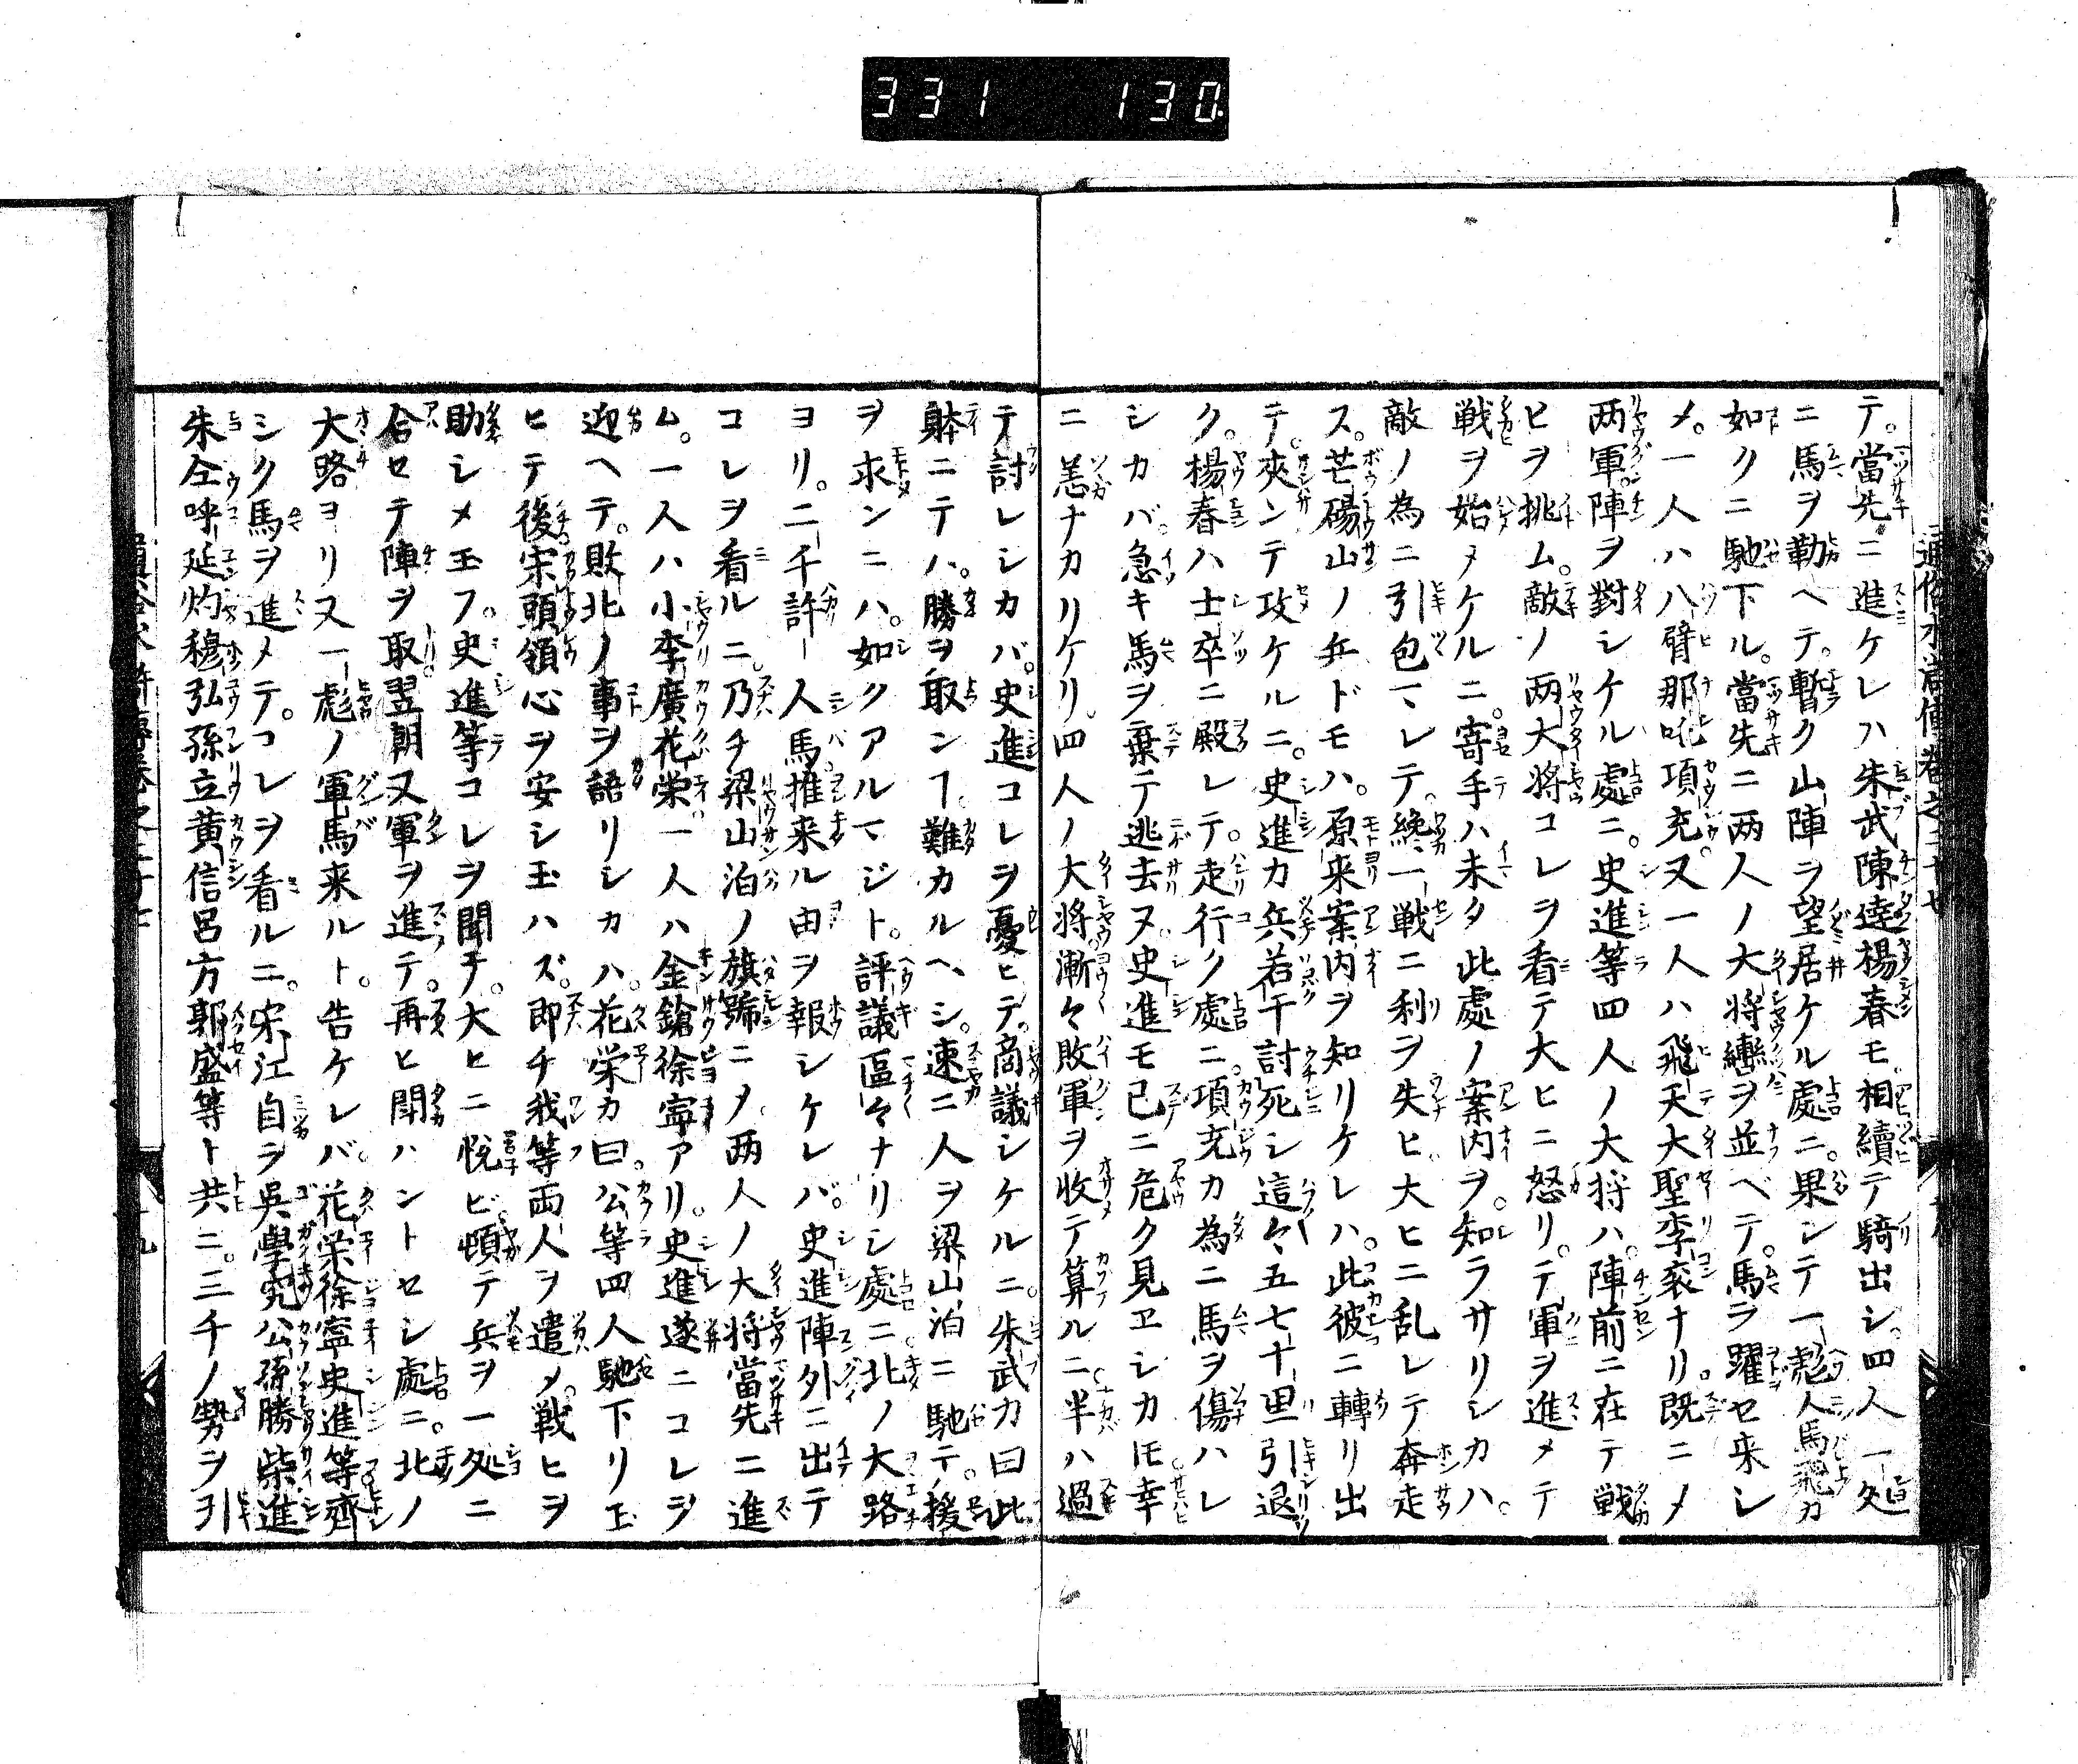 331 130.
テ。當先ニ進ケレハ朱武陳達楊春モ。相續テ騎出シ。四人一処
ニ馬ヲ勒ヘテ。暫ク山陣ヲ望居ケル處ニ。果シテ一彪人馬飛カ
如クニ馳下ル。當先ニ两人ノ大将轡ヲ並ベテ。馬ヲ躍セ来レ
メ。一人ハ八臂那吒項充又一人ハ飛天大聖李袞ナリ。既ニメ
两軍。陣ヲ對シケル處ニ。史進等四人ノ大将ハ。陣前ニ在テ戦
ヒヲ挑ム。敵ノ两大将コレヲ看テ大ヒニ怒リ。テ軍ヲ進メテ
戦ヲ始メケルニ。寄手ハ未タ此處ノ案内ヲ。知ラサリシカハ。
敵ノ為ニ引包マレテ。纔一戦ニ利ヲ失ヒ大ヒニ乱レテ奔走
ス。芒碭山ノ兵ドモハ。原来案内ヲ知リケレハ。此彼ニ轉リ出
テ。夾ンテ攻ケルニ。史進カ兵若干討死シ這々五七十里引退
ク。楊春ハ士卒ニ殿レテ。走行ク處ニ。項充カ為ニ馬ヲ傷ハレ
シカバ。急キ馬ヲ棄テ逃去ヌ史進モ已ニ危ク見ヱシカ𪜈幸
ニ恙ナカリケリ。四人ノ大将漸々敗軍ヲ收テ算ルニ半ハ過
テ討レシカバ。史進コレヲ憂ヒテ。商議シケルニ。朱武カ曰此
躰ニテハ。勝ヲ取ンヿ。難カルヘシ。速ニ人ヲ梁山泊ニ馳テ。援
ヲ求ンニハ。如クアルマジト。評議區々ナリシ處ニ北ノ大路
ヨリ。二千許ノ人馬推来ル由ヲ報シケレバ。史進陣外ニ出テ
コレヲ看ルニ。乃チ梁山泊ノ旗號ニメ。两人ノ大将當先ニ進
ム。一人ハ小李廣花栄一人ハ金鎗徐寧アリ。史進遂ニコレヲ
迎ヘテ。敗北ノ事ヲ語リシカハ。花栄カ曰。公等四人馳下リ玉
ヒテ後。宋頭領心ヲ安シ玉ハズ。即チ我等両人ヲ遣メ。戦ヒヲ
助シメ玉フ。史進等コレヲ聞テ。大ヒニ悦ビ。頓テ兵ヲ一処ニ
合セテ陣ヲ取翌朝又軍ヲ進テ。再ヒ闘ハントセシ處ニ。北ノ
大路ヨリ又一彪ノ軍馬来ルト。告ケレバ。花栄徐寧史進等齊
シク馬ヲ進メテ。コレヲ看ルニ。宋江自ヲ呉學究公孫勝柴進
朱仝呼延灼穆弘孫立黄信呂方郭盛等ト共ニ。三千ノ勢ヲ引